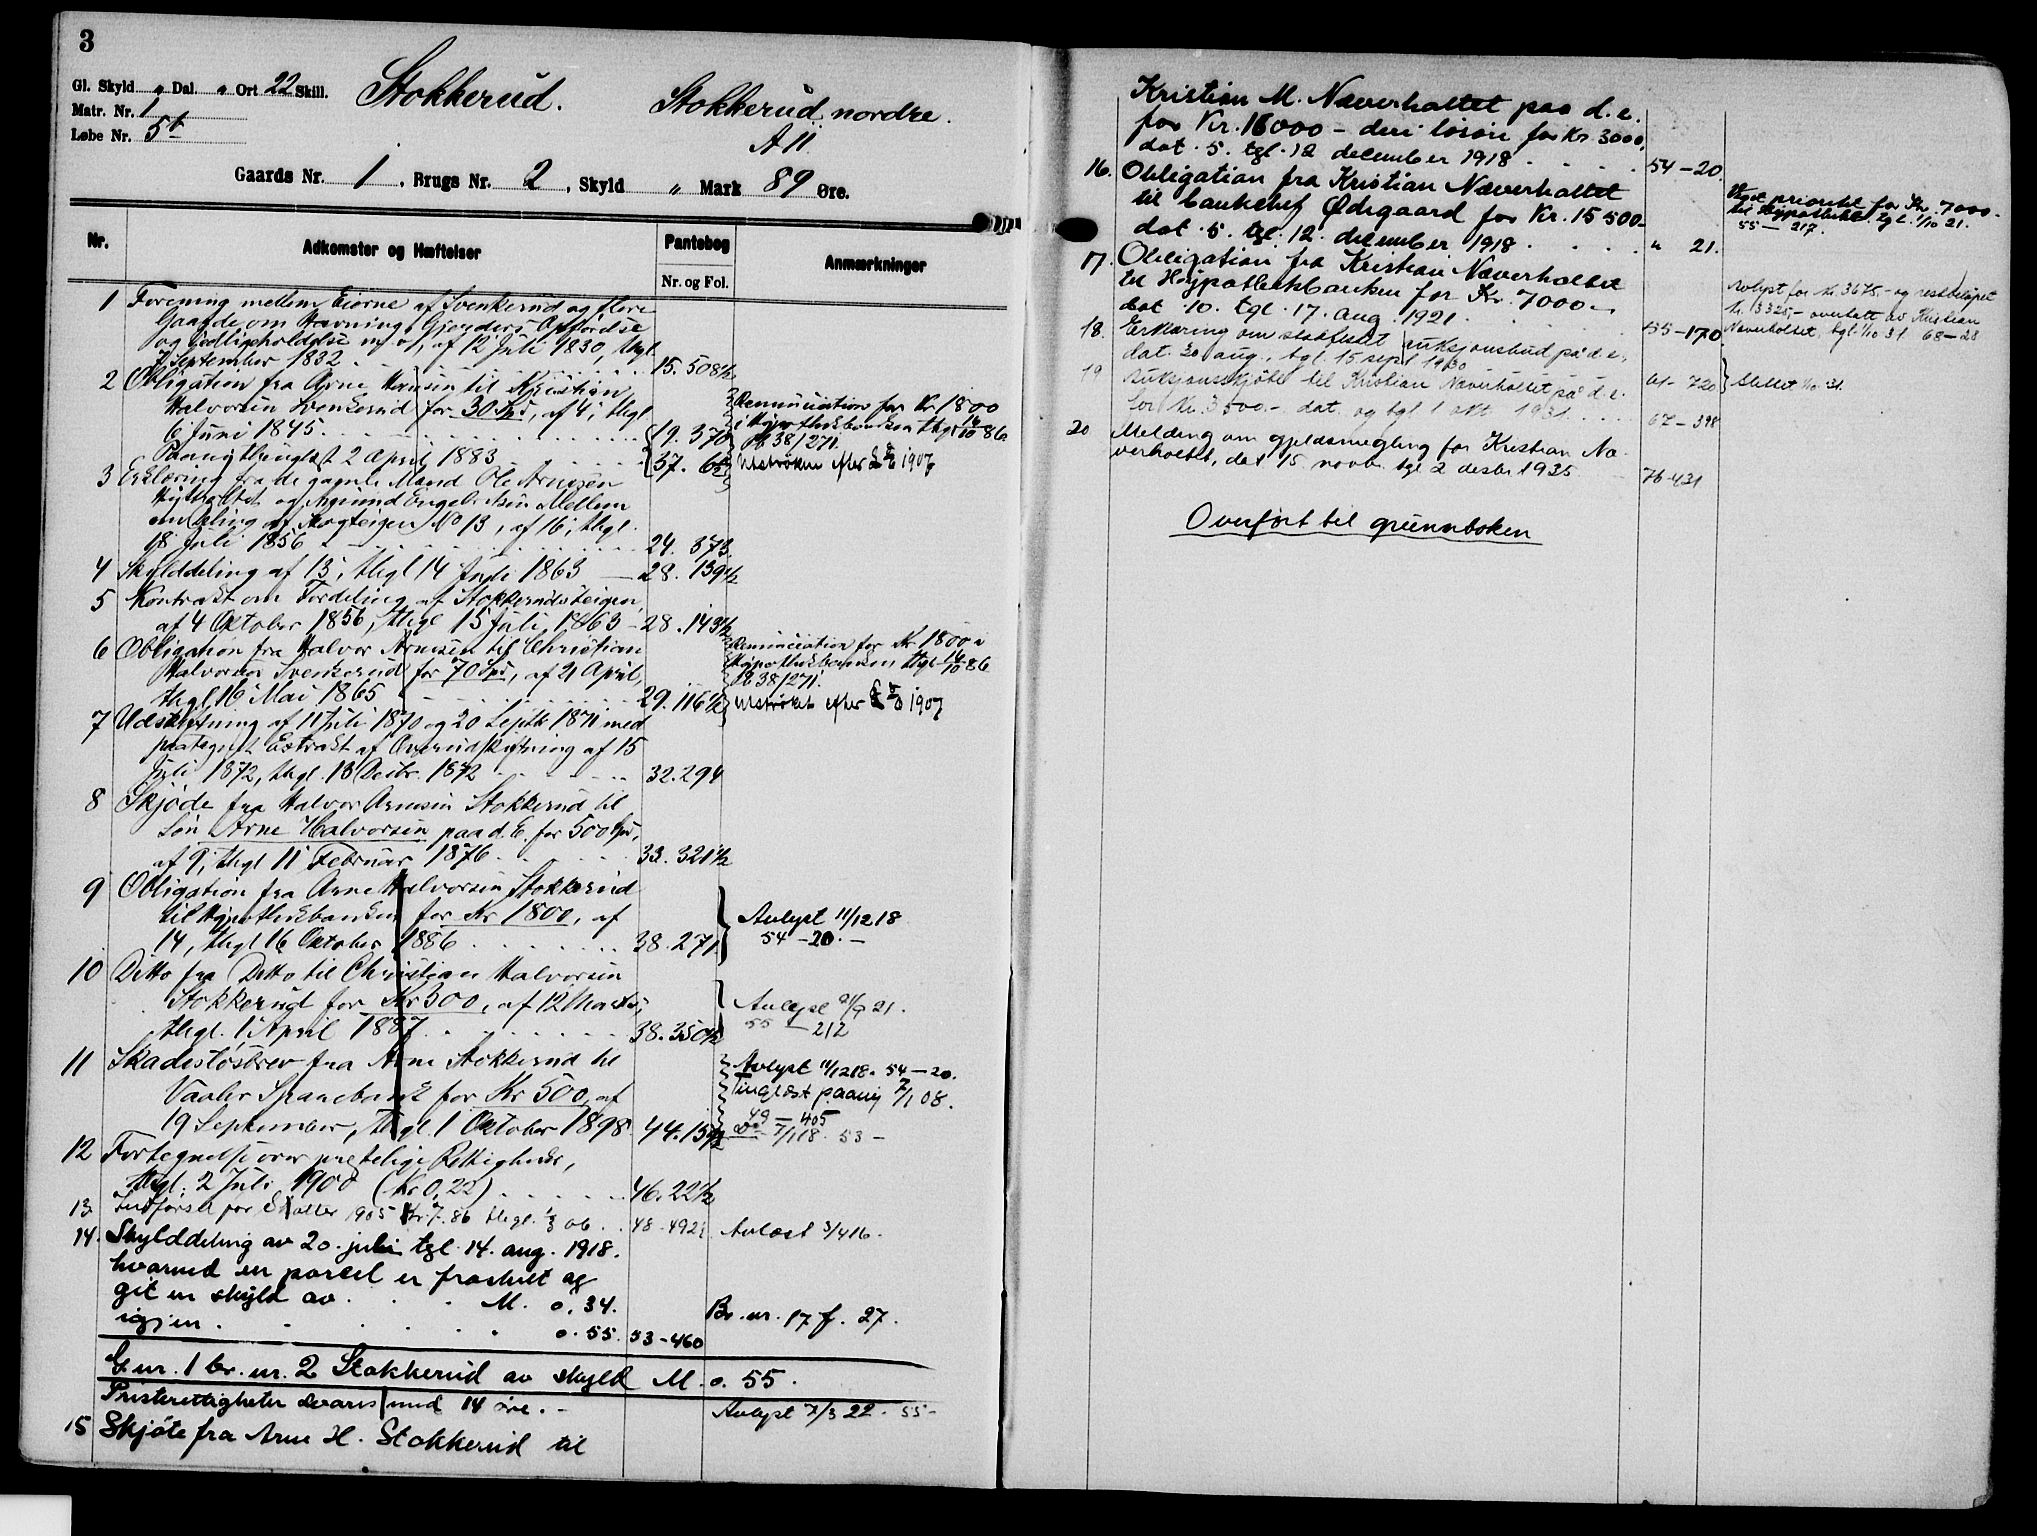 3
Gl. Skyld „ Dal. „ Ort 22 Skill.
Matr. Nr. 1
Løbe Nr. 5b
Stokkerud.
Stokkerud nordre.
A 11
Gaards Nr. 1, Brugs Nr. 2, Skyld „ Mark 89 Øre.
Nr.
Adkomster og Hæftelser
Pantebog
Nr. og Fol.
Anmærkninger
1 Forening mellem Eierne af Svenkerud og flere
Gaarde om Havning, Gjerders Opførelse
og Vedligeholdelse m. v., af 12 Juli 1830, thgl.
7 September 1832 15. 508½
2 Obligation fra Arne Hansen til Kristian
Halvorsen Svenkerud for 30 Spd, af 4, thgl
6 Juni 1845 19. 370
Paany thinglæst 2 April 1883 37. 62
Renunciation for Kr 1800
i Hypothekbanken thgl 16/10 86
Pb 38/271.
Utstrøken efter L 1907
3 Erklæring fra de gamle Mænd Ole Arnesen
og Amund Engebretsen Mellem
om Deling af Skogteigen No 13, af 16, thgl.
18 Juli 1856 24. 373.
4 Skylddeling af 13, thgl 14 Juli 1863 28. 139½
5 Kontrakt om Fordeling af Stokkerudsteigen,
af 4 Oktober 1856, thgl 15 Juli 1863 - 28. 143½
6 Obligation fra Halvor Arnesen til Christian
Halvorsen Svenkerud for 70 Spd, af 21 April,
thgl 16 Mai 1865 29. 116½
Renunciation for Kr 1800 i
Hypothekbanken thgl 16/10 86
Pb 38/271.
Utstrøket efter L 1907
7 Udskiftning af 11 Juli 1870 og 20 Septb 1871 med
paategnet Extrakt af Overudskiftning af 15
Juli 1872, thgl. 13 Decbr. 1872 32. 294
8 Skjøde fra Halvor Arnesen Stokkerud til
Søn Arne Halvorsen paa d. E. for 500 Spd,
af 9, thgl 11 Februar 1876 33. 321½
9 Obligation fra Arne Halvorsen Stokkerud
til Hypothekbanken for Kr 1800, af
14, thgl 16 Oktober 1886 38. 271.
Avlyst 11/12 18
54 - 20. -
10 Ditto fra Ditto til Christian Halvorsen
Stokkerud for Kr 300, af 12 Marts,
thgl. 1 April 1887. 38. 350½
Avlyst 21/9 21.
55 - 212
11 Skadesløsbrev fra Arne Stokkerud til
Vaaler Sparebank for Kr 500, af
19 September, thgl. 1 Oktober 1898 44. 15½
Avlyst 11/12 18. 54 - 20.
Tinglæst paany 7/1 08.
49 - 405
Do 7/1 18. 53 -
12 Fortegnelse over præstelige Rettigheder,
thgl. 2 Juli 1900 (Kr 0,22) 46. 22½
13. Indførsel for Skatter 1905 Kr 7.86 thgl. 1/3 06. 48 - 492½
Avlæst 3/4 16.
14. Skylddeling av 20. juli tgl. 14. aug. 1918.
hvorved en parcel er fraskilt og
git en skyld av M. 0,34.
Br. nr. 17 f. 27.
igjen 0.55. 53 - 460
G. nr. 1 br. nr. 2 Stokkerud av skyld M. 0.55.
Presterettigheter svares med 14 øre. -
Avlyst 7/3 22. 55 -
15 Skjøte fra Arne H. Stokkerud til
Kristian M. Næverholtet paa d. e.
for Kr. 16000 - deri løsøre for Kr. 3000,
dat. 5. tgl. 12 december 1918 54 - 20.
16. Obligation fra Kristian Næverholtet
til bankchef Ødegaard for Kr. 15 500 -
dat. 5. tgl. 12. december 1918 „ 21.
Veget prioritet for Kr. 7000.-
til Hypotheket. tgl. 1/10 21.
55 - 217.
17. Obligation fra Kristian Næverholtet
til Hypothekbanken for Kr. 7000 -
dat. 10. tgl. 17. aug. 1921. 55 - 170
Avlyst for kr. 3675,- og restbeløpet
kr. 3325,- overtatt av Kristian
Næverholtet, tgl. 1/10 31. 68 - 28
18. Erklæring om stadfestet auksjonsbud på d. e.,
dat. 30 aug., tgl. 15. sept. 1930 61 - 720
Slettet 1/10 31.
19 Auksjonsskjøte til Kristian Næverholtet på d. e.
for Kr. 3500.- dat. og tgl. 1 okt. 1931 67 - 398
20 Melding om gjeldsmegling for Kristian Næ-
verholtet, dat 15. novbr. tgl 2 desbr. 1935 76 - 431
Overført til grunnboken